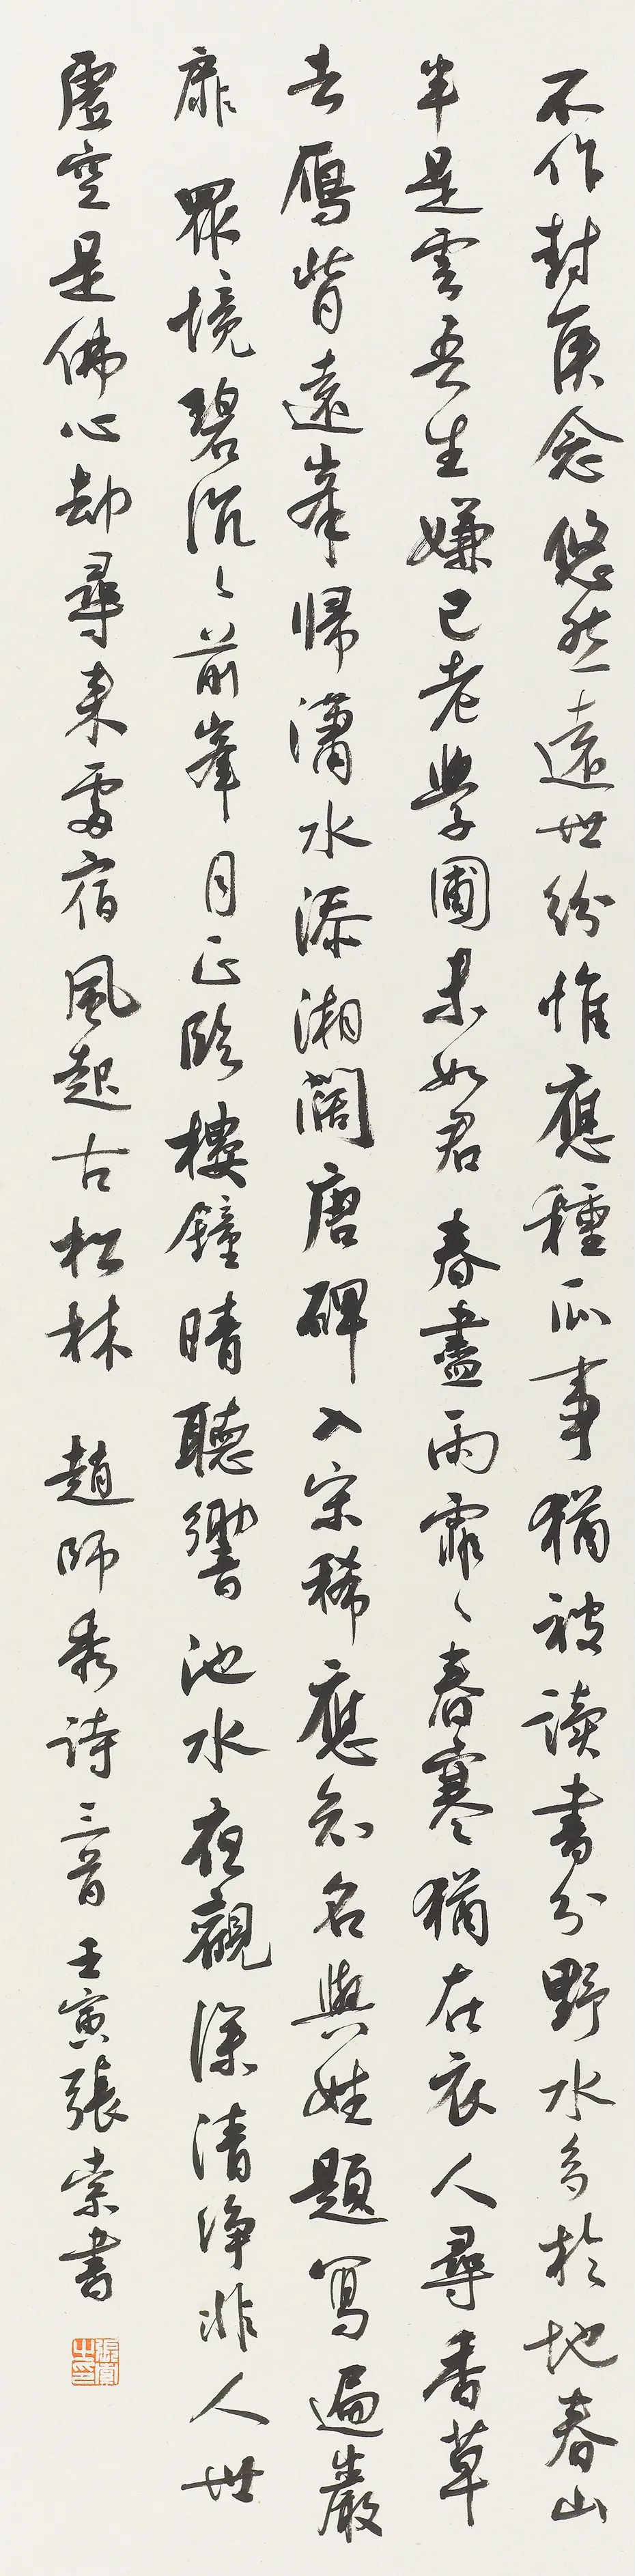 不作封侯念悠然遠世紛惟應種瓜事猶被讀書分野水多於地春山
半是雲吾生嫌已老學圃未如君 春盡雨霏〻春寒猶在衣人尋香草
去鴈背遠峯歸瀟水添湘闊唐碑入宋稀應知名與姓題寫遍巖
扉 眾境碧沉〻前峯月正臨樓鐘晴聽響池水夜觀深清淨非人世
虛空是佛心却尋來處宿風起古松林 趙師秀詩三首 壬寅張索書
張索之印